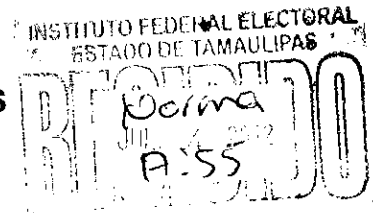 INSTITUTO FEDERAL ELECTORAL
ESTADO DE TAMAULIPAS
S
RECIBIDO
Norma
JUL 2012
A:55